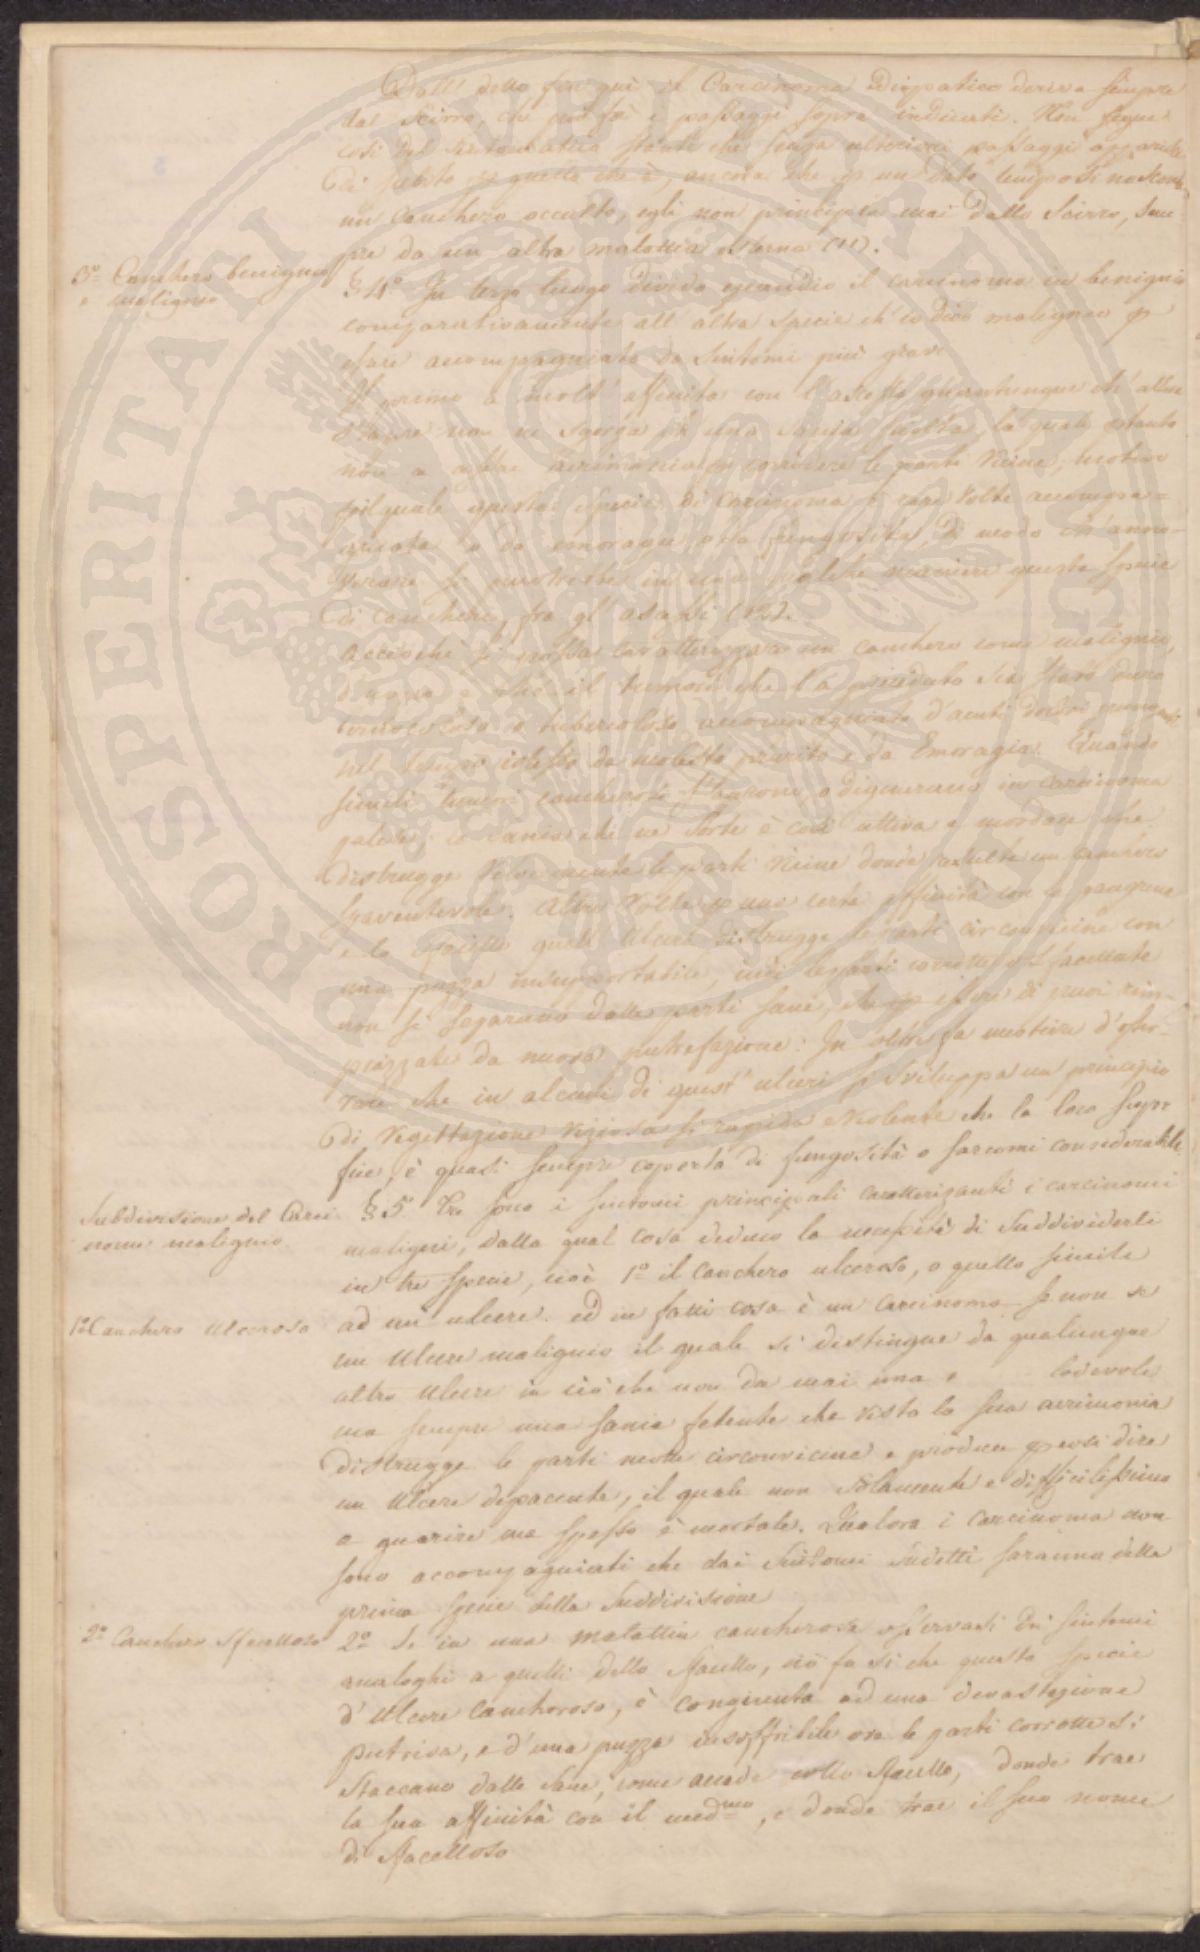 Dall' detto fin quì il Carcinoma Idiopatico deriva sempre
dal Scirro, che passaggi sopra indicati. Non segue
così del sintomatico stante che senza ulteriori passaggi apparisce
di subito quello che è, ancora che un dato tempo
un Canchero occulto, egli non principia mai dallo Scirro, sem
pre da un altra malattia esterna (11).
3º Canchero benigno
e maligno
§ 4º In terzo luogo divido eziandio il carcinoma in benigno
comparativamente all' altra specie ch' io dico maligno p
essere accompagniato da sintomi più gravi
Il primo a molt' affinità con l' quantunque ch' allor
non ne sgorga ch' una sania la quale pertanto
non a acrimonia corrodere le parti vicine, motivo
pel quale questa specie di Carcinoma è rare volte accompa=
gniata da emoragie o da fungosità, di modo ch' anno=
verare si potrebbe in una qualche maniera questa specie
di cancheri, fra gl' (12).
Acciochè si possa caratterizzare un canchero come maligno,
d'uopo è che il tumore che l' a preciduto sia stato duro
o tubercoloso accompagniato d'acuti dolori
nel istesso da molesto prurito e da Emoragia. Quando
simili tumori cancherosi s' o digenerano in carcinoma
palese, la sania che ne sorte è così attiva e mordace che
distrugge velocemente le parti vicine donde risulta un canchero
spaventevole. Altre volte una certa affinità con la gangrena
e lo sfacello quell' ulcere distrugge le parti circonvicine con
una puzza insupportabile, indi le parti corrotte e sfacellate
non si separano dalle parti sane, che p essere di nuovo rim=
piazzate da nuova putrefazione: In oltre fa mestiere d'osser=
vare che in alcuni di quest' ulceri si sviluppa un principio
di Vegettazione viziosa si rapida e violente che la loro super
ficie, è quasi sempre coperta di fungosità o sarcomi considerabili.
Subdivisione del Carci
noma maligno.
§ 5º Tre sono i sintomi principali caratterizanti i carcinomi
maligni, dalla qual cosa deduco la necessità di suddividerli
in tre specie, cioè 1º il Canchero ulceroso, o quello simile
1º Canchero Ulceroso
ad un ulcere. ed in fatti cosa è un Carcinoma se non se
un Ulcere maligno il quale si distingue da qualunque
altro Ulcere in ciò che non da mai una lodevole
ma sempre una sania fetente che vista la sua acrimonia
distrugge le parti molle circonvicine e produce p così dire
un Ulcere depacente, il quale non solamente e difficilissimo
a guarire ma spesso è mortale. Qualora i Carcinoma non
sono accompagniati che dai sintomi sudetti saranno della
prima specie della suddivisione
2º Canchero sfacelloso
2º Se in una malattia cancherosa osservasi dei sintomi
analoghi a quelli dello sfacello, ciò fa si che questa specie
d' Ulcere Cancheroso, è congiunta ad una devastazione
putrida, e d' una puzza insoffribile ora le parti corrotte si
staccano dalle sane, come accade collo sfacello, donde trae
la sua affinità con il medmo, e donde trae il suo nome
di sfacelloso
PROSPERITATI PVBLICAE AVGENDAE